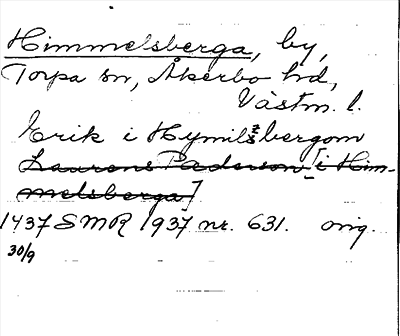 Himmelsberga, by,
Torpa sn, Åkerbo hd,
Västm. l.
Erik i Hymilszbergom
Laurens Pederson [i Him-
melsberga]
1437 SMR 1937 nr. 631. orig.
30/9